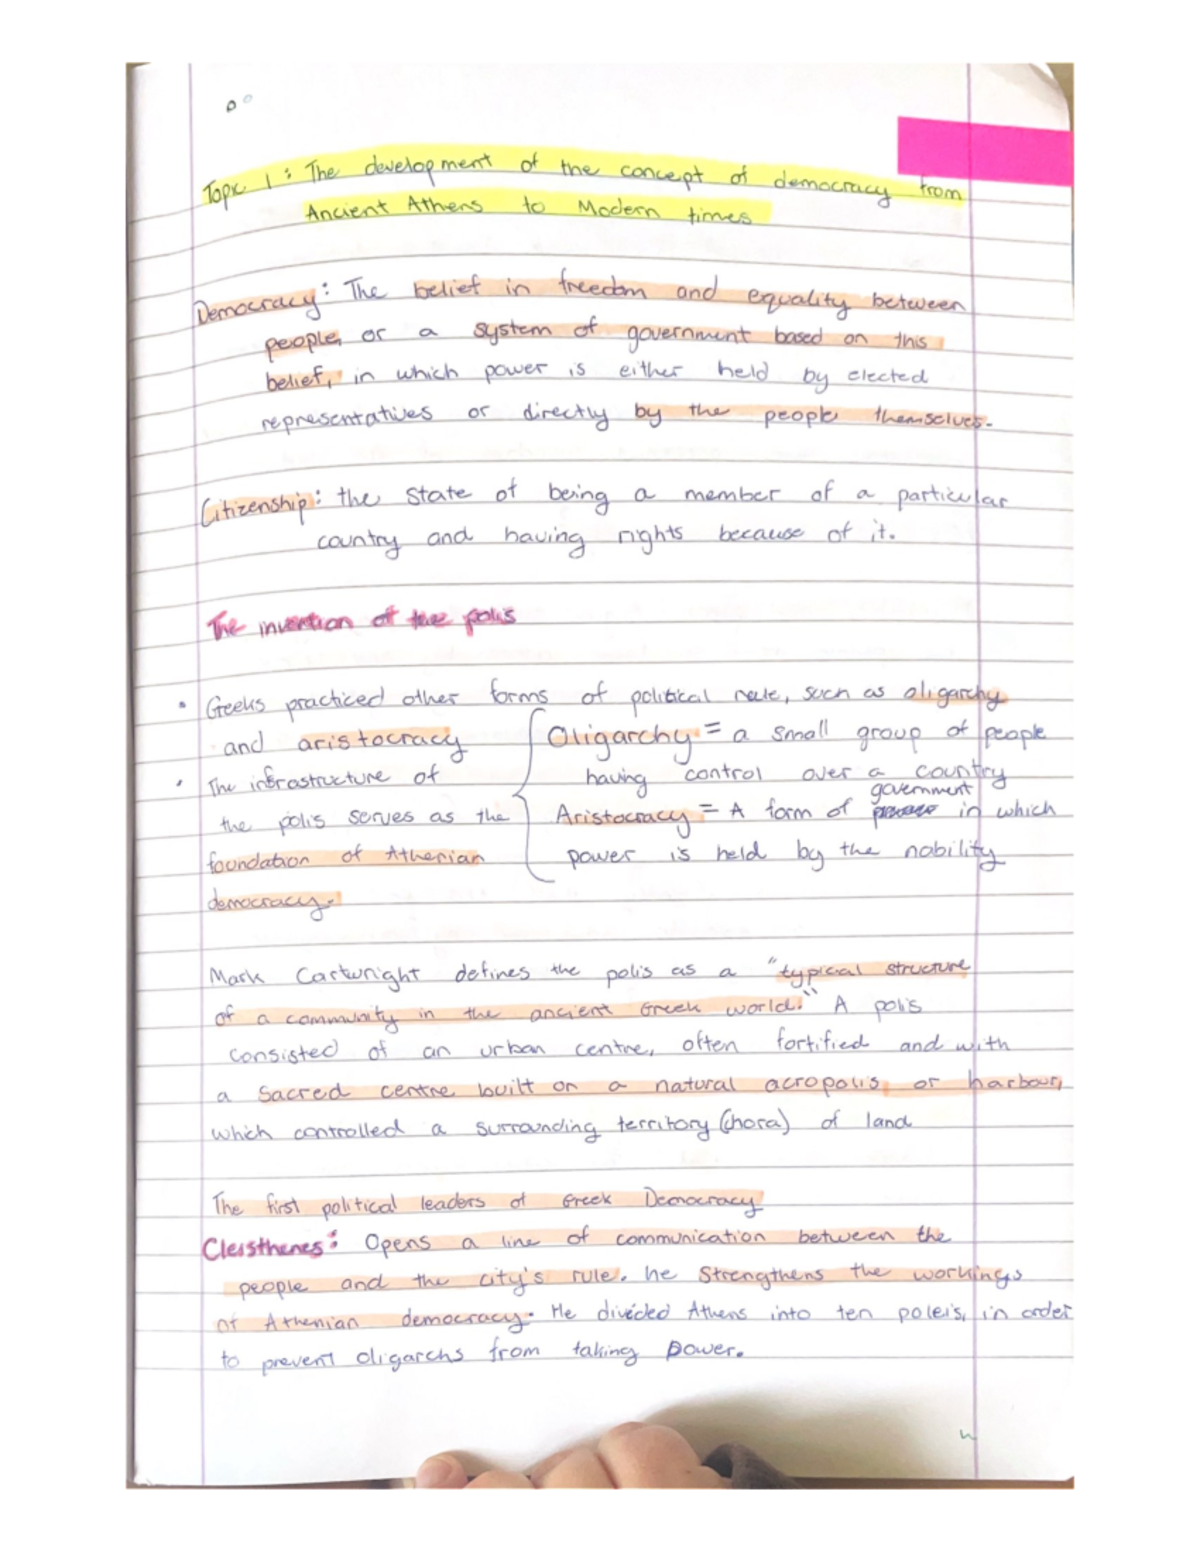 Topic 1: The development of the concept of democracy from
Ancient Athens to Modern times
Democracy: The belief in freedom and equality between
people, or a system of government based on this
belief, in which power is either held by elected
representatives or directly by the people themselves.
Citizenship: the state of being a member of a particular
country and having rights because of it.
The invention of the polis
• Greeks practiced other forms of political rule, such as oligarchy
and aristocracy
• The infrastructure of
the polis serves as the
foundation of Athenian
democracy.
Oligarchy = a small group of people
having control over a country
Aristocracy = A form of government in which
power is held by the nobility
Mark Cartwright defines the polis as a "typical structure
of a community in the ancient Greek world." A polis
consisted of an urban centre, often fortified and with
a sacred centre built on a natural acropolis or harbour,
which controlled a surrounding territory (chora) of land
The first political leaders of Greek Democracy
Cleisthenes: Opens a line of communication between the
people and the city's rule. he strengthens the workings
of Athenian democracy. He divided Athens into ten poleis, in order
to prevent oligarchs from taking power.